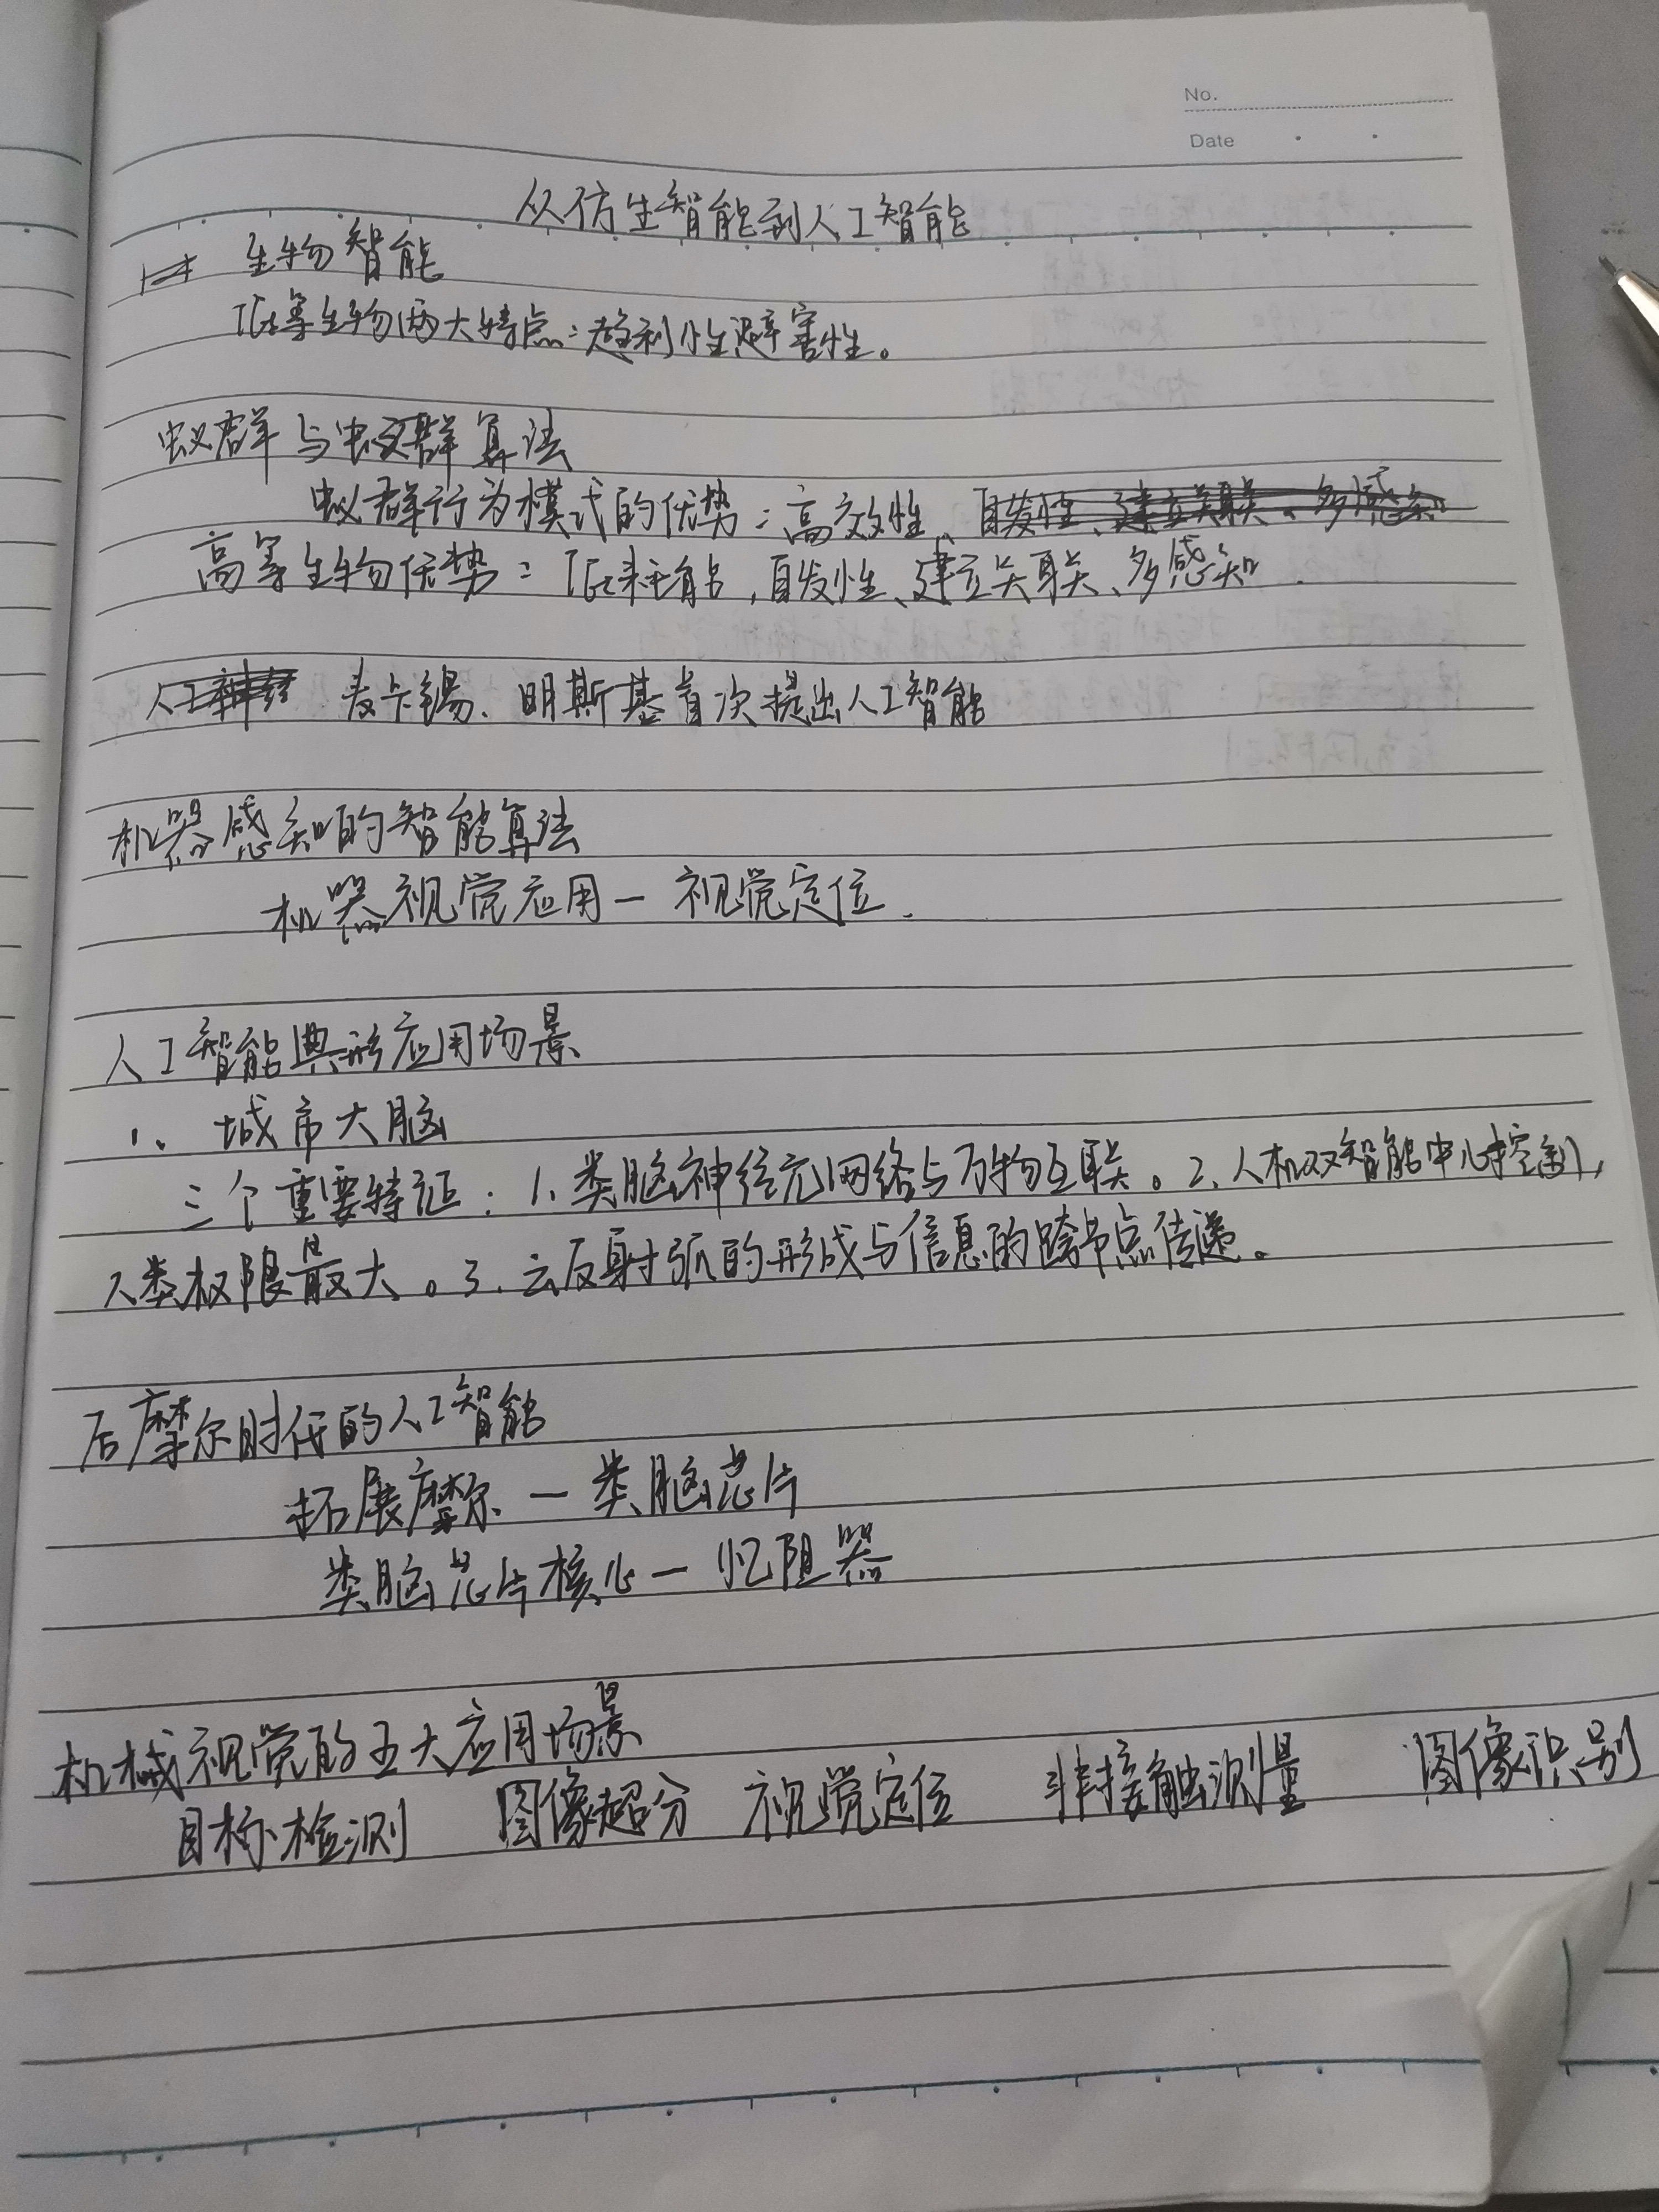 No.
Date
从仿生智能到人工智能
生物智能
低等生物两大特点：趋利性避害性。
蚁群与蚁群算法
蚁群行为模式的优势：高效性、自发性、建立关联、多感知
高等生物优势：低耗能，自发性、建立关联、多感知.
人工神经 麦卡锡、明斯基首次提出人工智能
机器感知的智能算法
机器视觉应用—视觉定位.
人工智能典形应用场景
1、城市大脑
三个重要特征：1、类脑神经元网络与万物互联。2、人机双智能中心控制，
人类权限最大。3、云反射弧的形成与信息的跨节点传递。
后摩尔时代的人工智能
拓展摩尔—类脑芯片
类脑芯片核心—忆阻器
机械视觉的五大应用场景
目标检测 图像超分 视觉定位 非接触测量 图像识别